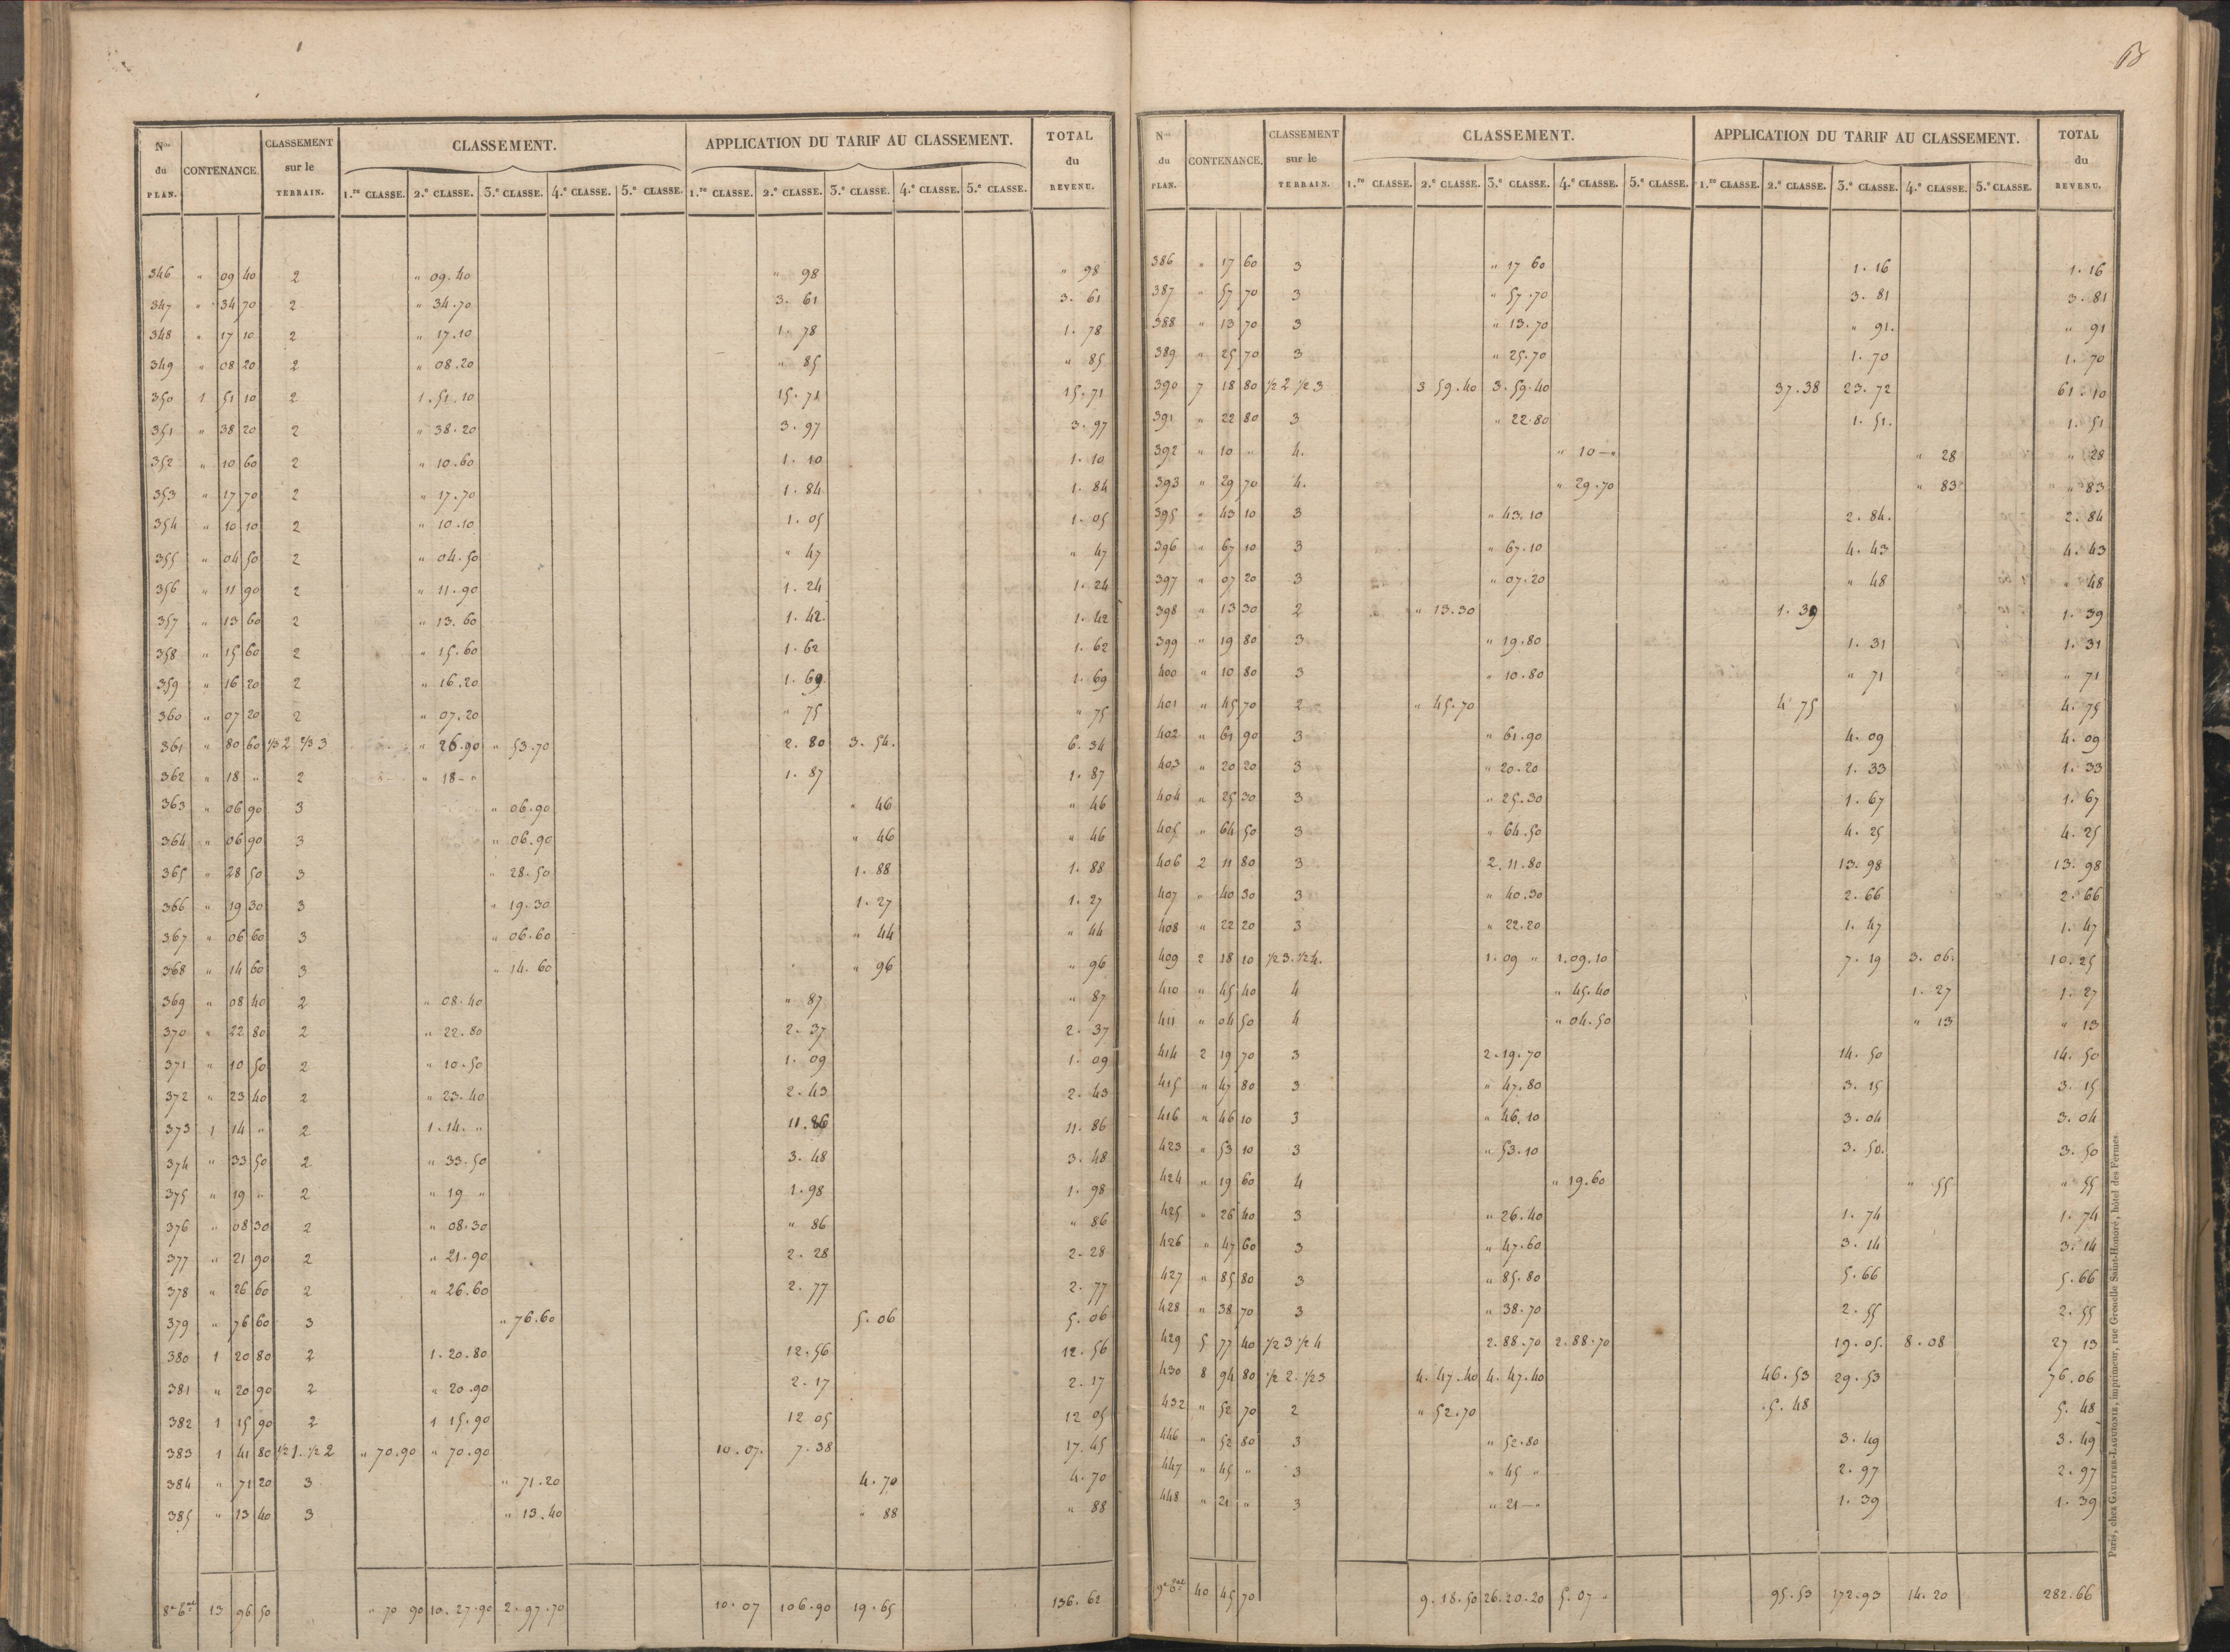 N.os du PLAN. CONTENANCE. CLASSEMENT sur le TERRAIN. CLASSEMENT. APPLICATION DU TARIF AU CLASSEMENT. TOTAL du REVENU.
1.re CLASSE. 2.e CLASSE. 3.e CLASSE. 4.e CLASSE. 5.e CLASSE. 1.re CLASSE. 2.e CLASSE. 3.e CLASSE. 4.e CLASSE. 5.e CLASSE.
346 " 09 40 2 " 09.40 " 98 " 98
347 " 34 70 2 " 34.70 3. 61 3. 61
348 " 17 10 2 " 17.10 1. 78 1. 78
349 " 08 20 2 " 08.20 " 85 " 85
350 1 51 10 2 1.51.10 15.71 15.71
351 " 38 20 2 " 38.20 3.97 3.97
352 " 10 60 2 " 10.60 1. 10 1. 10
353 " 17 70 2 " 17.70 1. 84 1. 84
354 " 10 10 2 " 10.10 1. 05 1. 05
355 " 04 50 2 " 04.50 " 47 " 47
356 " 11 90 2 " 11.90 1. 24 1. 24
357 " 13 60 2 " 13.60 1. 42 1. 42
358 " 15 60 2 " 15.60 1. 62 1. 62
359 " 16 20 2 " 16.20 1. 69 1. 69
360 " 07 20 2 " 07.20 " 75 " 75
361 " 80 60 1/3 2 2/3 3 " 26.90 " 53.70 2. 80 3. 54. 6. 34
362 " 18 " 2 " 18 - " 1. 87 1. 87
363 " 06 90 3 " 06.90 " 46 " 46
364 " 06 90 3 " 06.90 " 46 " 46
365 " 28 50 3 " 28.50 1. 88 1. 88
366 " 19 30 3 " 19.30 1. 27 1. 27
367 " 06 60 3 " 06.60 " 44 " 44
368 " 14 60 3 " 14.60 " 96 " 96
369 " 08 40 2 " 08.40 " 87 " 87
370 " 22 80 2 " 22.80 2. 37 2. 37
371 " 10 50 2 " 10.50 1. 09 1. 09
372 " 23 40 2 " 23.40 2. 43 2. 43
373 1 14 " 2 1.14. " 11.86 11. 86
374 " 33 50 2 " 33.50 3. 48 3. 48
375 " 19 " 2 " 19 " 1.98 1. 98
376 " 08 30 2 " 08.30 " 86 " 86
377 " 21 90 2 " 21.90 2. 28 2. 28
378 " 26 60 2 " 26.60 2. 77 2. 77
379 " 76 60 3 " 76.60 5. 06 5. 06
380 1 20 80 2 1.20.80 12.56 12. 56
381 " 20 90 2 " 20.90 2. 17 2. 17
382 1 15 90 2 1 15.90 12 05 12 05
383 1 41 80 1/2 1. 1/2 2 " 70.90 " 70.90 10.07. 7.38 17.45
384 " 71 20 3 " 71.20 4. 70 4. 70
385 " 13 40 3 " 13.40 " 88 " 88
8e bal 13 96 50 " 70 90 10.27.90 2.97.70 10.07 106.90 19.65 136.62
N.os du PLAN. CONTENANCE. CLASSEMENT sur le TERRAIN. CLASSEMENT. APPLICATION DU TARIF AU CLASSEMENT. TOTAL du REVENU.
1.re CLASSE. 2.e CLASSE. 3.e CLASSE. 4.e CLASSE. 5.e CLASSE. 1.re CLASSE. 2.e CLASSE. 3.e CLASSE. 4.e CLASSE. 5.e CLASSE.
386 " 17 60 3 " 17 60 1. 16 1. 16
387 " 57 70 3 " 57.70 3. 81 3. 81
388 " 13 70 3 " 13.70 " 91. " 91
389 " 25 70 3 " 25.70 1. 70 1. 70
390 7 18 80 1/2 2 1/2 3 3 59.40 3.59.40 37.38 23.72 61.10
391 " 22 80 3 " 22.80 1. 51. 1. 51
392 " 10 " 4. " 10 - " " 28 " 28
393 " 29 70 4. " 29.70 " 83 " 83
395 " 43 10 3 " 43.10 2. 84. 2. 84
396 " 67 10 3 " 67.10 4. 43 4. 43
397 " 07 20 3 " 07.20 " 48 " 48
398 " 13 30 2 " 13.30 1. 39 1. 39
399 " 19 80 3 " 19.80 1. 31 1. 31
400 " 10 80 3 " 10.80 " 71 " 71
401 " 45 70 2 " 45.70 4. 75 4. 75
402 " 61 90 3 " 61.90 4. 09 4. 09
403 " 20 20 3 " 20.20 1. 33 1. 33
404 " 25 30 3 " 25.30 1. 67 1. 67
405 " 64 50 3 " 64.50 4. 25 4. 25
406 2 11 80 3 2.11.80 13. 98 13. 98
407 " 40 30 3 " 40.30 2. 66 2. 66
408 " 22 20 3 " 22.20 1. 47 1. 47
409 2 18 10 1/2 3. 1/2 4. 1.09 " 1.09.10 7. 19 3. 06. 10.25
410 " 45 40 4 " 45.40 1. 27 1. 27
411 " 04 50 4 " 04.50 " 13 " 13
414 2 19 70 3 2.19.70 14. 50 14. 50
415 " 47 80 3 " 47.80 3. 15 3. 15
416 " 46 10 3 " 46.10 3. 04 3. 04
423 " 53 10 3 " 53.10 3. 50. 3. 50
424 " 19 60 4 " 19.60 " 55 " 55
425 " 26 40 3 " 26.40 1. 74 1. 74
426 " 47 60 3 " 47.60 3. 14 3. 14
427 " 85 80 3 " 85.80 5.66 5.66
428 " 38 70 3 " 38.70 2. 55 2. 55
429 5 77 40 1/2 3 1/2 4 2.88.70 2.88.70 19.05. 8.08 27 13
430 8 94 80 1/2 2. 1/2 3 4.47.40 4.47.40 46.53 29.53 76.06
432 " 52 70 2 " 52.70 5. 48 5. 48
446 " 52 80 3 " 52.80 3. 49 3. 49
447 " 45 " 3 " 45 " 2. 97 2. 97
448 " 21 " 3 " 21 - " 1. 39 1. 39
9e bal 40 45 70 9.18.50 26.20.20 5.07 " 95.53 172.93 14.20 282.66
Paris, chez GAULTIER-LAGUIONIE, imprimeur, rue Grenelle Saint-Honoré, hôtel des Fermes.